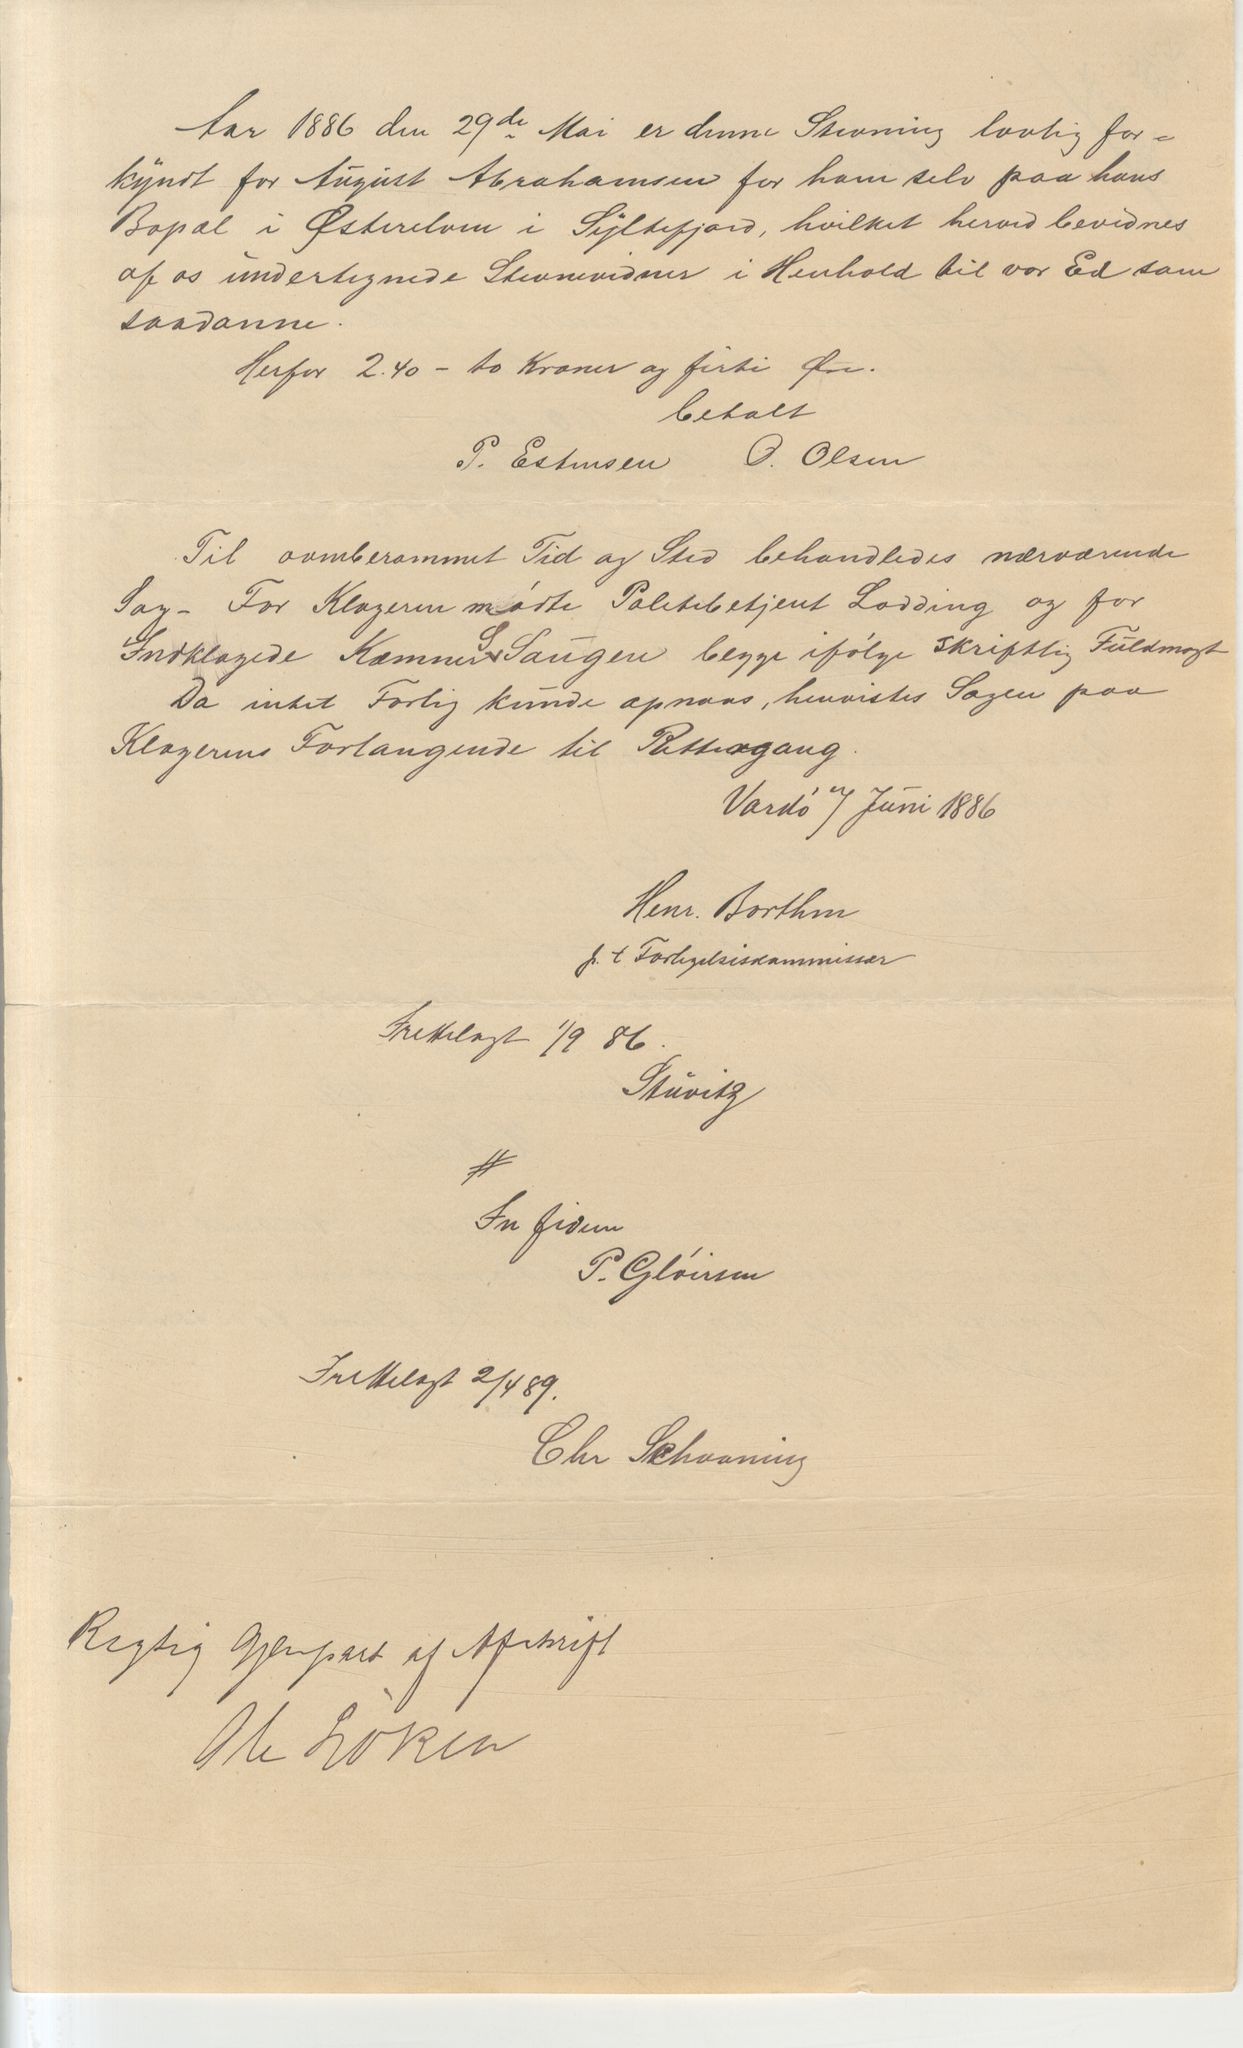 Aar 1886 den 29de Mai er denne Stevning lovlig for=
kyndt for August Abrahamsen for ham selv paa hans
Bopæl i Østerelven i Syltefjord, hvilket herved bevidnes
af os undertegnede Stevnevidner i Henhold til vor Ed som
saadanne.
Herfor 2.40 - to Kroner og firti Øre.
betalt
P. Estensen O. Olsen
Til ovenberammet Tid og Sted behandledes nærværende
Sag - For Klageren mødte Politibetjent Lodding og for
Indklagede Kæmner S Saugen begge ifølge skriftlig Fuldmagt
Da intet Forlig kunde opnaaes, henvistes Sagen paa
Klagerens Forlangende til Rettergang.
Vardø Juni 1886
Henr. Borthen
p. t Forligelseskommissær
Fremlagt 1/9 86.
Stuvitz
#
In fidem
P. Gløersen
Fremlagt 2/4 89.
Chr Schaaning
Rigtig Gjenpart af Afskrift
Ole Løken